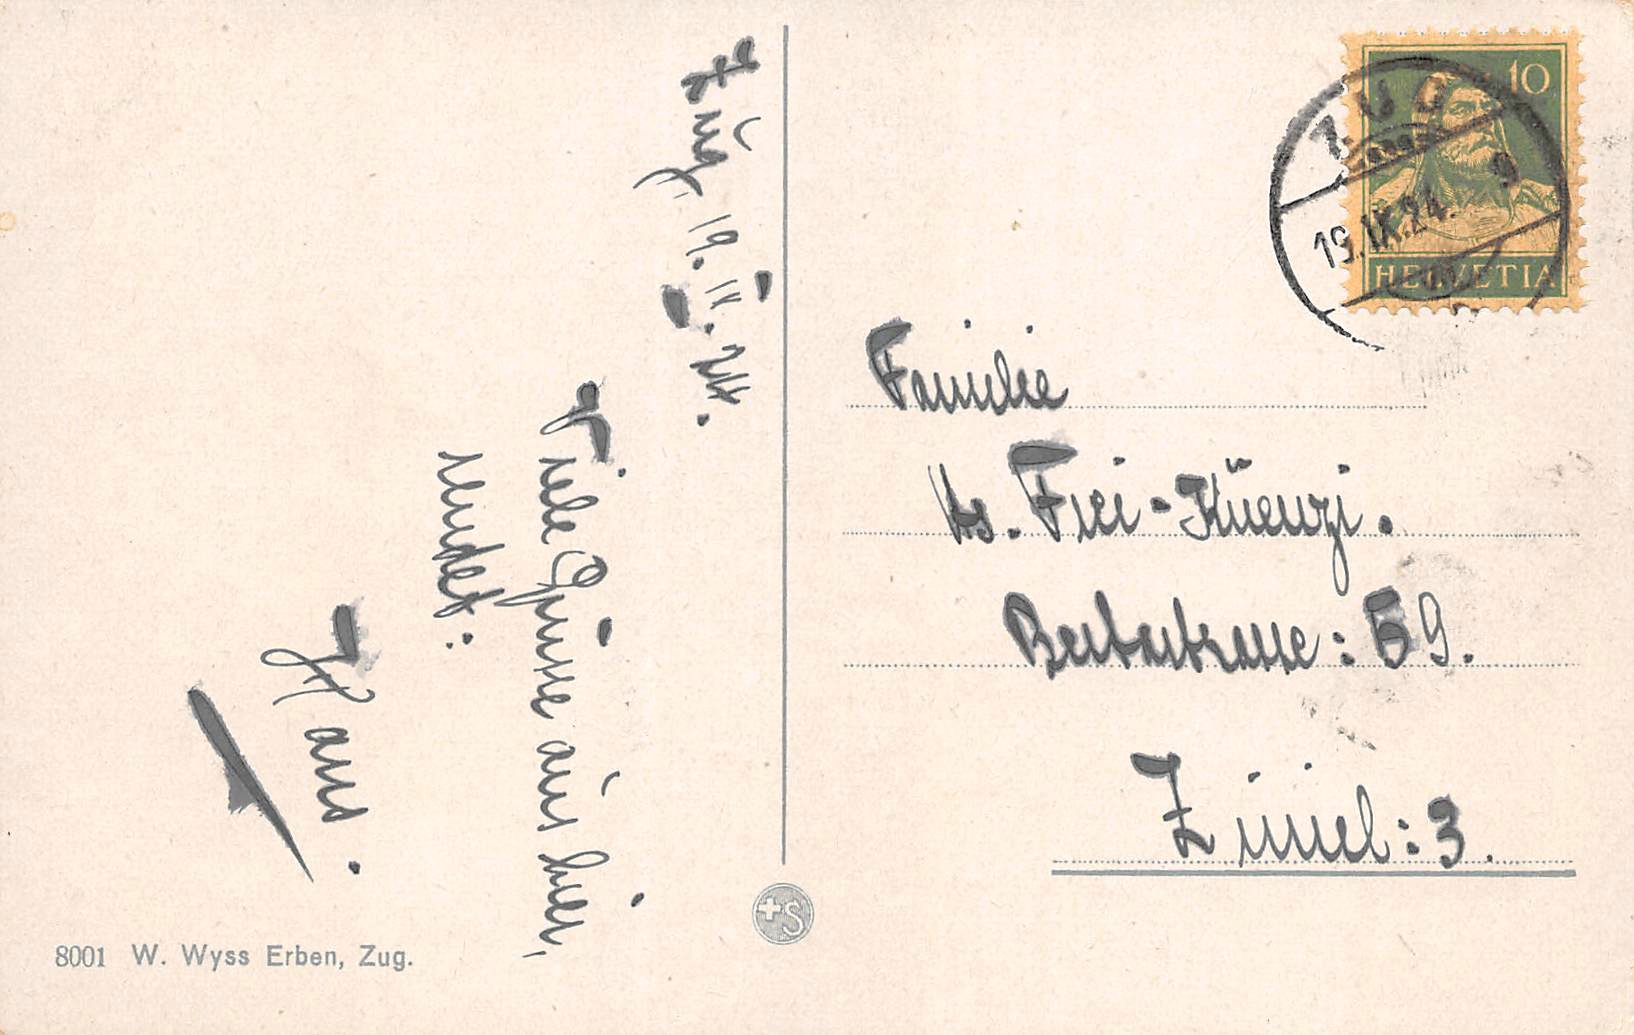 Zug, 19. IX. 24.
Viele Grüsse aus hier,
sendet:
Hans.
10
ZUG
19.IX.24. 9
HELVETIA
Familie
Hs. Frei-Küenzi.
Bertastrasse: 59.
Zürich: 3.
+S
8001 W. Wyss Erben, Zug.